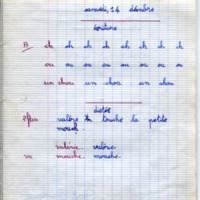 samedi, 14 décembre
écriture
B ch ch ch ch ch ch ch ch
ou ou ou ou ou ou ou
un chou un chou un chou
dictée
valérie touche la petite
mouch.
valérie. valérie.
mouche. mouche.